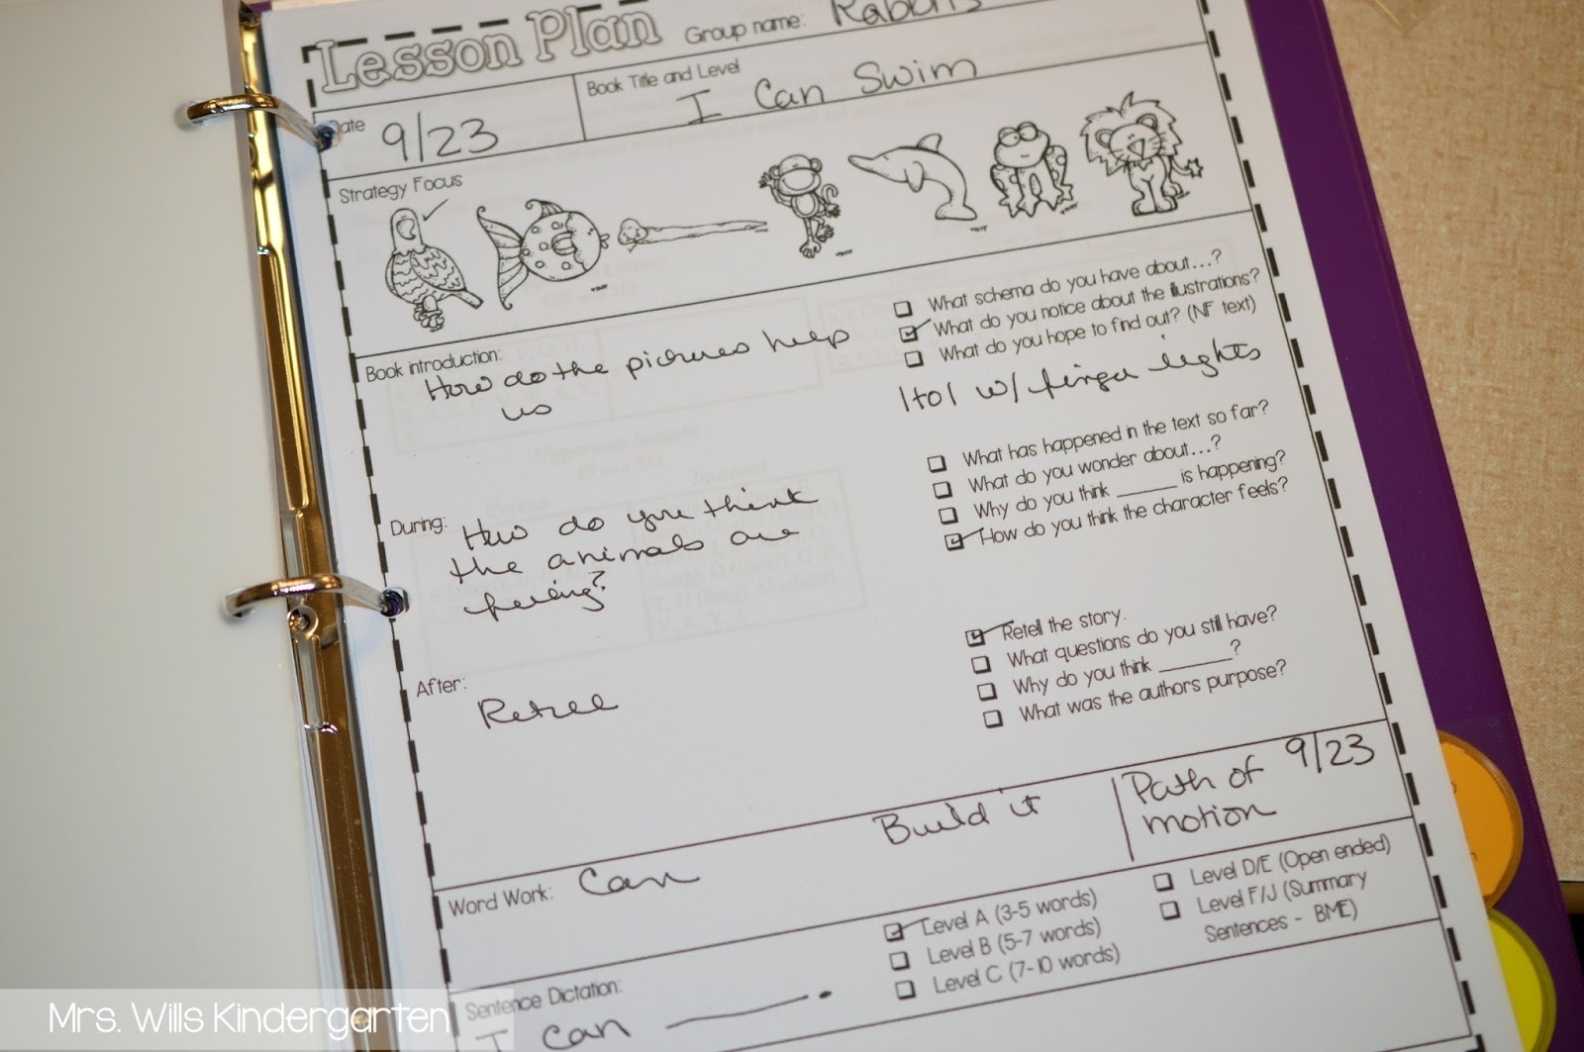 Lesson Plan Group name: Rabbits
Date 9/23
Book Title and Level
I Can Swim
Strategy Focus
Book introduction:
How do the pictures help
us
What schema do you have about...?
What do you notice about the illustrations?
What do you hope to find out? (NF text)
1to1 w/ finger lights
During:
How do you think
the animals are
feeling?
What has happened in the text so far?
What do you wonder about...?
Why do you think ______ is happening?
How do you think the character feels?
After:
Retell
Retell the story.
What questions do you still have?
Why do you think _______?
What was the authors purpose?
Word Work: Can
Build it
Path of 9/23
motion
Sentence Dictation:
I can ______.
Level A (3-5 words)
Level B (5-7 words)
Level C (7-10 words)
Level D/E (Open ended)
Level F/J (Summary
Sentences - BME)
Mrs. Wills Kindergarten